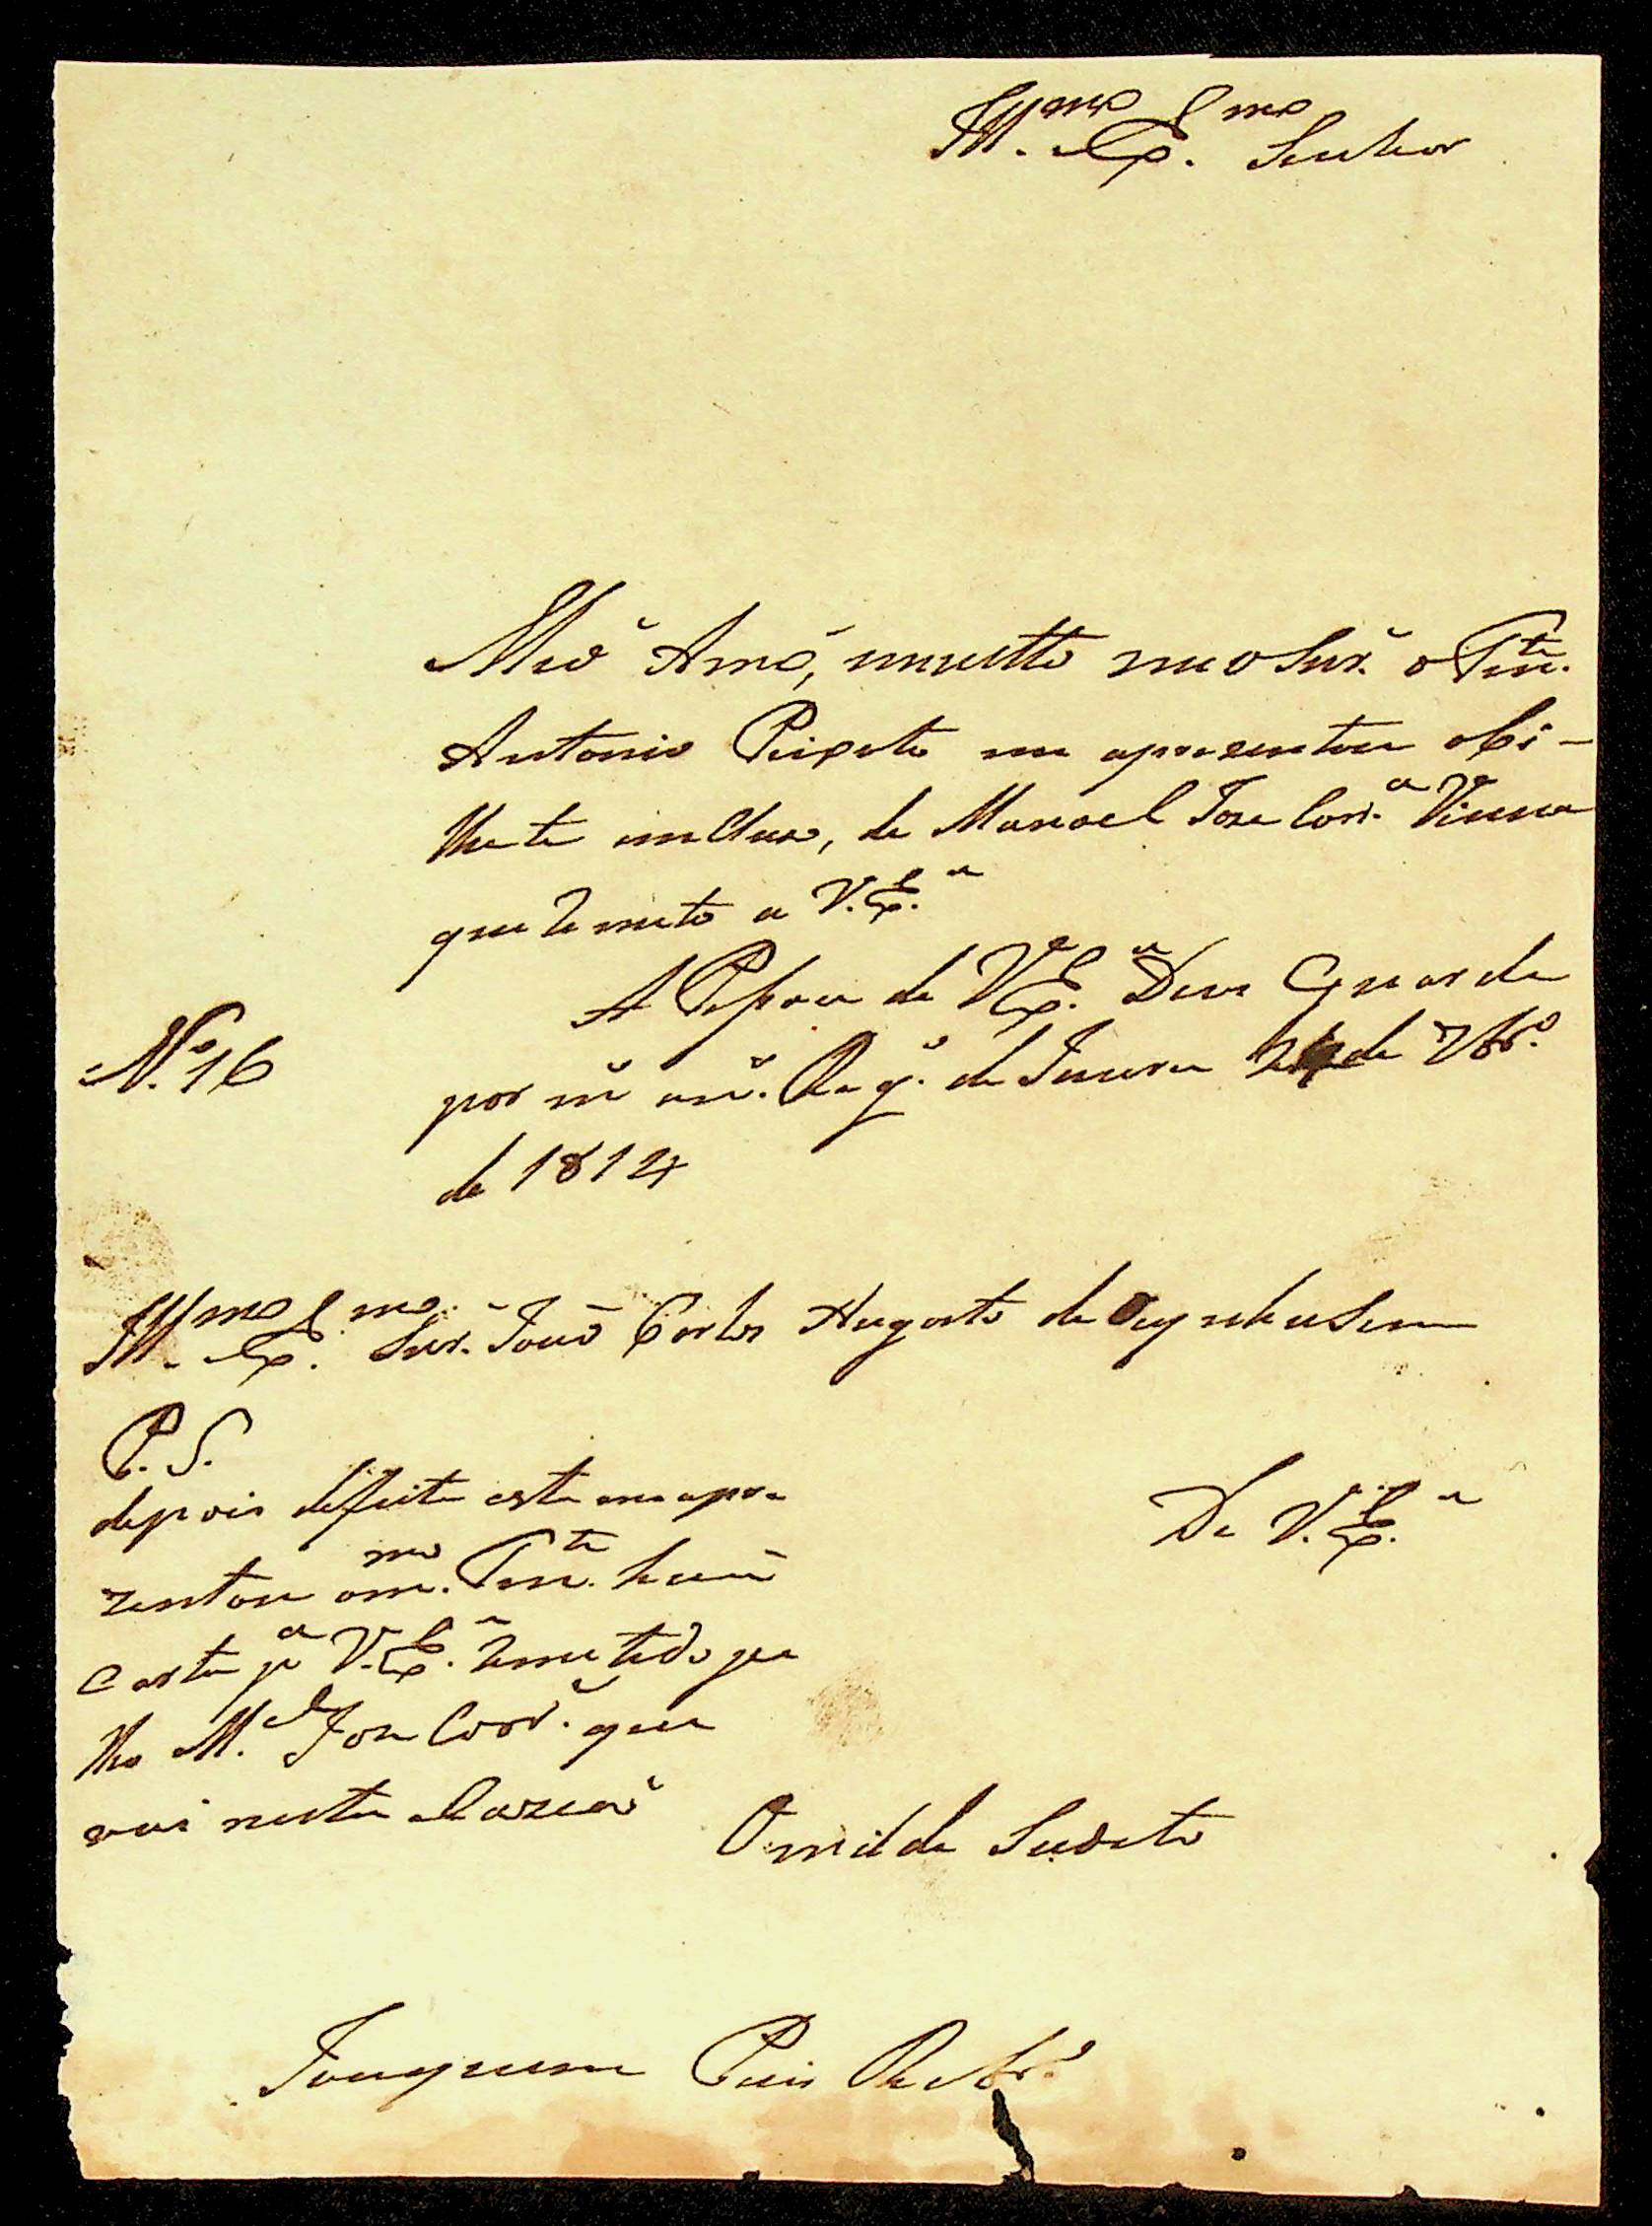 Ill.mo Ex.mo Senhor
Meo Amo, e muitto meo Snr. o Ten.te
Antonio Peixoto me aprezentou obi-
lhete incluzo, de Manoel Joze Corr.a Vianna
que Remeto a V. Ex.a
A Pessoa de V Ex.a Deus Guarde
por m an. Reg. de 7br.o
de 1812
N.o 16
Ill.mo Ex.mo Snr. João Carlos Augusto de Oeynhausem
P. S.
depois defeita esta me apre
zentou o m.mo Ten.te huã
Carta p.a V. Ex.a Remetida pe
lho M.el Joze Corr. que
vai nesta Ocazião
De V. Ex.a
Omilde Sudeto
Joaquim